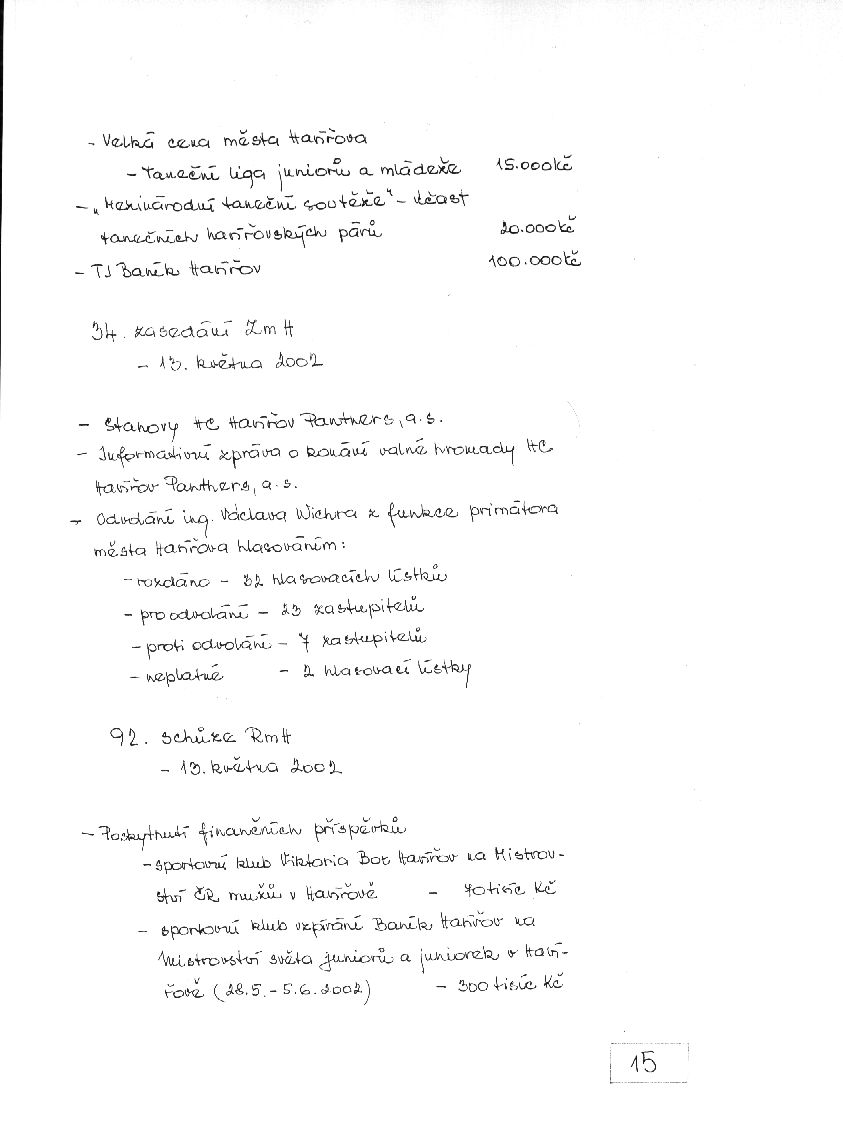 - Velká cena města Havířova
- taneční liga juniorů a mládeže 15.000 Kč
- „Mezinárodní taneční soutěže" - účast
tanečních havířovských párů 20.000 Kč
- TJ Baník Havířov 100.000 Kč
34. zasedání ZmH
- 13. května 2002
- Stanovy HC Havířov Panthers, a.s.
- Informativní zpráva o konání valné hromady HC
Havířov Panthers, a.s.
- Odvolání ing. Václava Wichra z funkce primátora
města Havířova hlasováním:
- rozdáno - 32 hlasovacích lístků
- pro odvolání - 23 zastupitelů
- proti odvolání - 7 zastupitelů
- neplatné - 2 hlasovací lístky
92. schůze RmH
- 13. května 2002
- Poskytnutí finančních příspěvků
- sportovní klub Viktoria Box Havířov na Mistrov-
ství ČR mužů v Havířově - 70 tisíc Kč
- sportovní klub vzpírání Baník Havířov na
Mistrovství světa juniorů a juniorek v Haví-
řově (28.5. - 5.6.2002) - 300 tisíc Kč
15